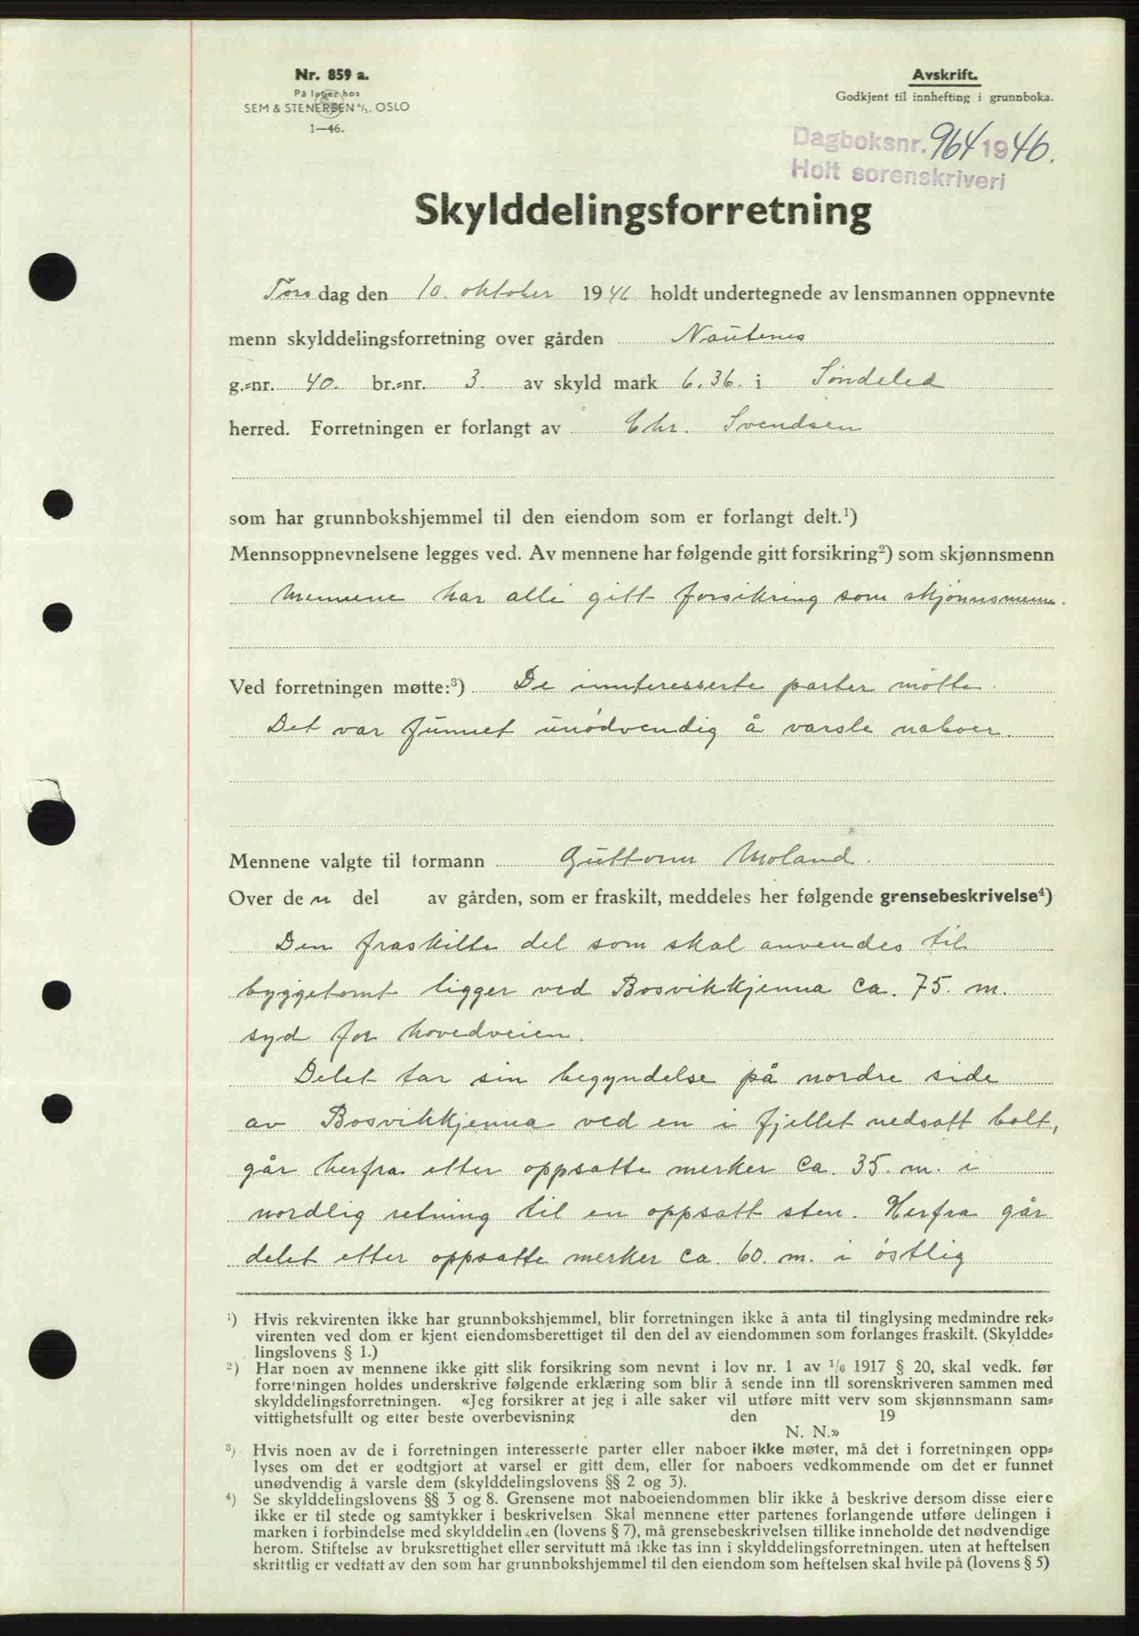 Nr. 859 a.
På lager hos
SEM & STENERSEN A/S. OSLO
1—46.
Avskrift.
Godkjent til innhefting i grunnboka.
Dagboksnr. 964 1946.
Holt sorenskriveri
Skylddelingsforretning
Torsdag den 10. oktober 1946 holdt undertegnede av lensmannen oppnevnte
menn skylddelingsforretning over gården Nautenes
g.-nr. 40. br.-nr. 3. av skyld mark 6.36. i Søndeled
herred. Forretningen er forlangt av Chr. Svendsen
som har grunnbokshjemmel til den eiendom som er forlangt delt.¹)
Mennsoppnevnelsene legges ved. Av mennene har følgende gitt forsikring²) som skjønnsmenn
Mennene har alle gitt forsikring som skjønnsmenn.
Ved forretningen møtte:³) De innteresserte parter møtte.
Det var funnet unødvendig å varsle naboer.
Mennene valgte til formann Guttorm Moland.
Over de n del av gården, som er fraskilt, meddeles her følgende grensebeskrivelse⁴)
Den fraskilte del som skal anvendes til
byggetomt ligger ved Bosvikkjenna ca. 75. m.
syd for hovedveien.
Delet tar sin begyndelse på nordre side
av Bosvikkjenna ved en i fjellet nedsatt bolt,
går herfra etter oppsatte merker ca. 35. m. i
nordlig retning til en oppsatt sten. Herfra går
delet etter oppsatte merker ca. 60. m. i østlig
¹) Hvis rekvirenten ikke har grunnbokshjemmel, blir forretningen ikke å anta til tinglysing medmindre rek-
virenten ved dom er kjent eiendomsberettiget til den del av eiendommen som forlanges fraskilt. (Skyldde-
lingslovens § 1.)
²) Har noen av mennene ikke gitt slik forsikring som nevnt i lov nr. 1 av 1/6 1917 § 20, skal vedk. før
forretningen holdes underskrive følgende erklæring som blir å sende inn til sorenskriveren sammen med
skylddelingsforretningen. «Jeg forsikrer at jeg i alle saker vil utføre mitt verv som skjønnsmann sam-
vittighetsfullt og etter beste overbevisning den 19
N. N.»
³) Hvis noen av de i forretningen interesserte parter eller naboer ikke møter, må det i forretningen opp-
lyses om det er godtgjort at varsel er gitt dem, eller for naboers vedkommende om det er funnet
unødvendig å varsle dem (skylddelingslovens §§ 2 og 3).
⁴) Se skylddelingslovens §§ 3 og 8. Grensene mot naboeiendommen blir ikke å beskrive dersom disse eiere
ikke er til stede og samtykker i beskrivelsen Skal mennene etter partenes forlangende utføre delingen i
marken i forbindelse med skylddelin en (lovens § 7), må grensebeskrivelsen tillike inneholde det nødvendige
herom. Stiftelse av bruksrettighet eller servitutt må ikke tas inn i skylddelingsforretningen. uten at heftelsen
skriftlig er vedtatt av den som har grunnbokshjemmel til den eiendom som heftelsen skal hvile på (lovens § 5)